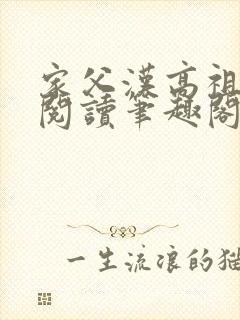 家父漢高祖
閱讀筆趣閣
一生流浪的貓